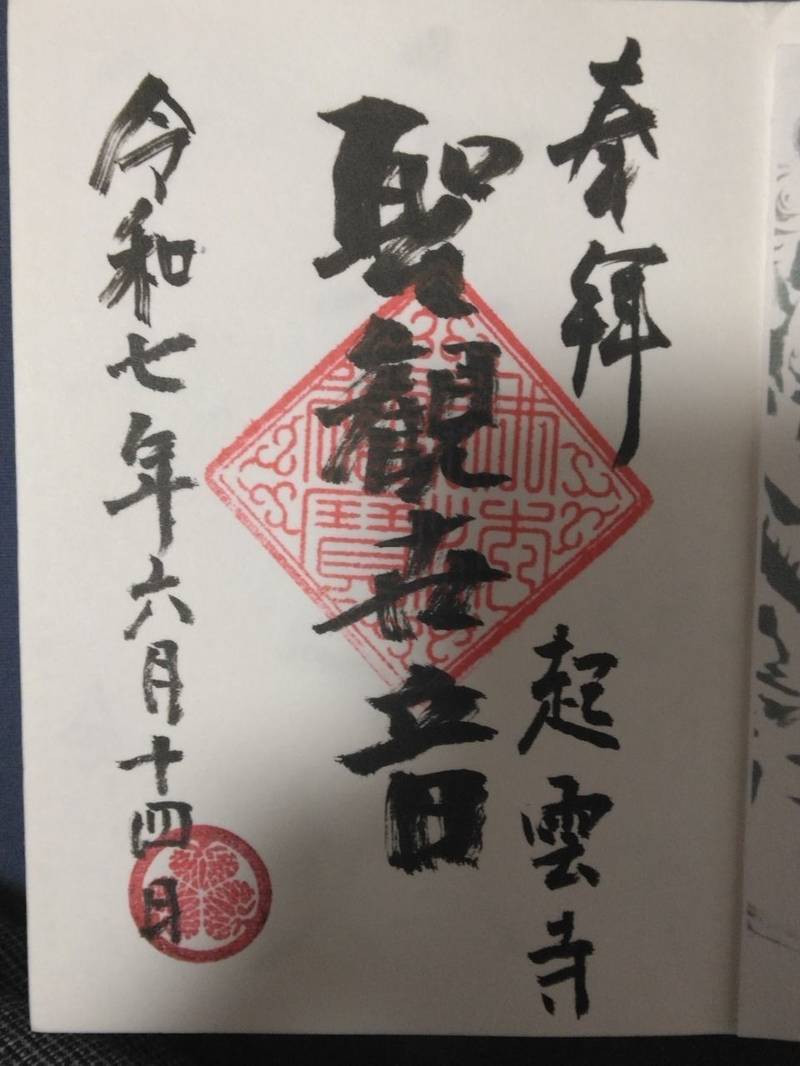 奉拝
起雲寺
聖観世音
令和七年六月十四日